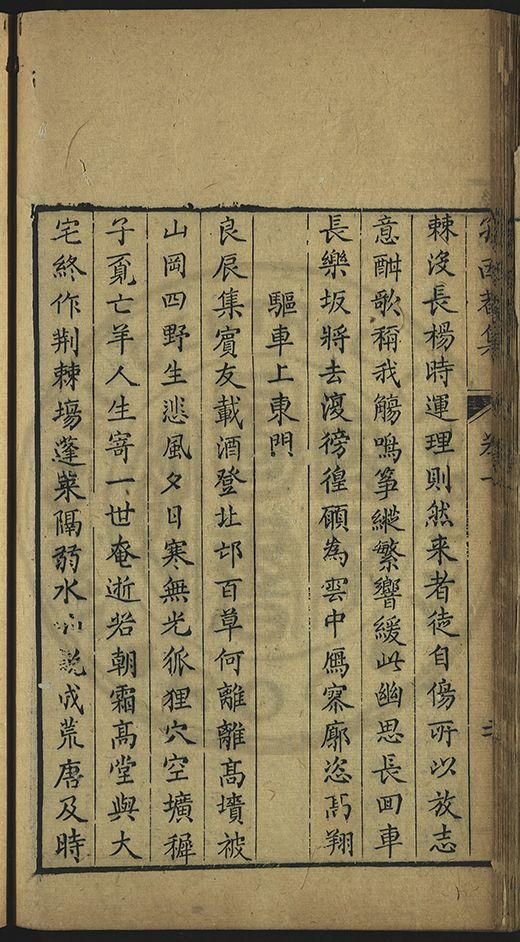 棘沒長楊時運理則然来者徒自傷所以放志
意酣歌稱我觴鳴箏縱繁響緩此幽思長回車
長樂坂將去復徬徨願為雲中鴈寥廓恣高翔
驅車上東門
良辰集賓友載酒登北邙百草何離離高墳被
山岡四野生悲風夕日寒無光狐狸穴空壙穉
子覓亡羊人生寄一世奄逝若朝霜高堂與大
宅終作荆棘場蓬萊隔弱水說成荒唐及時